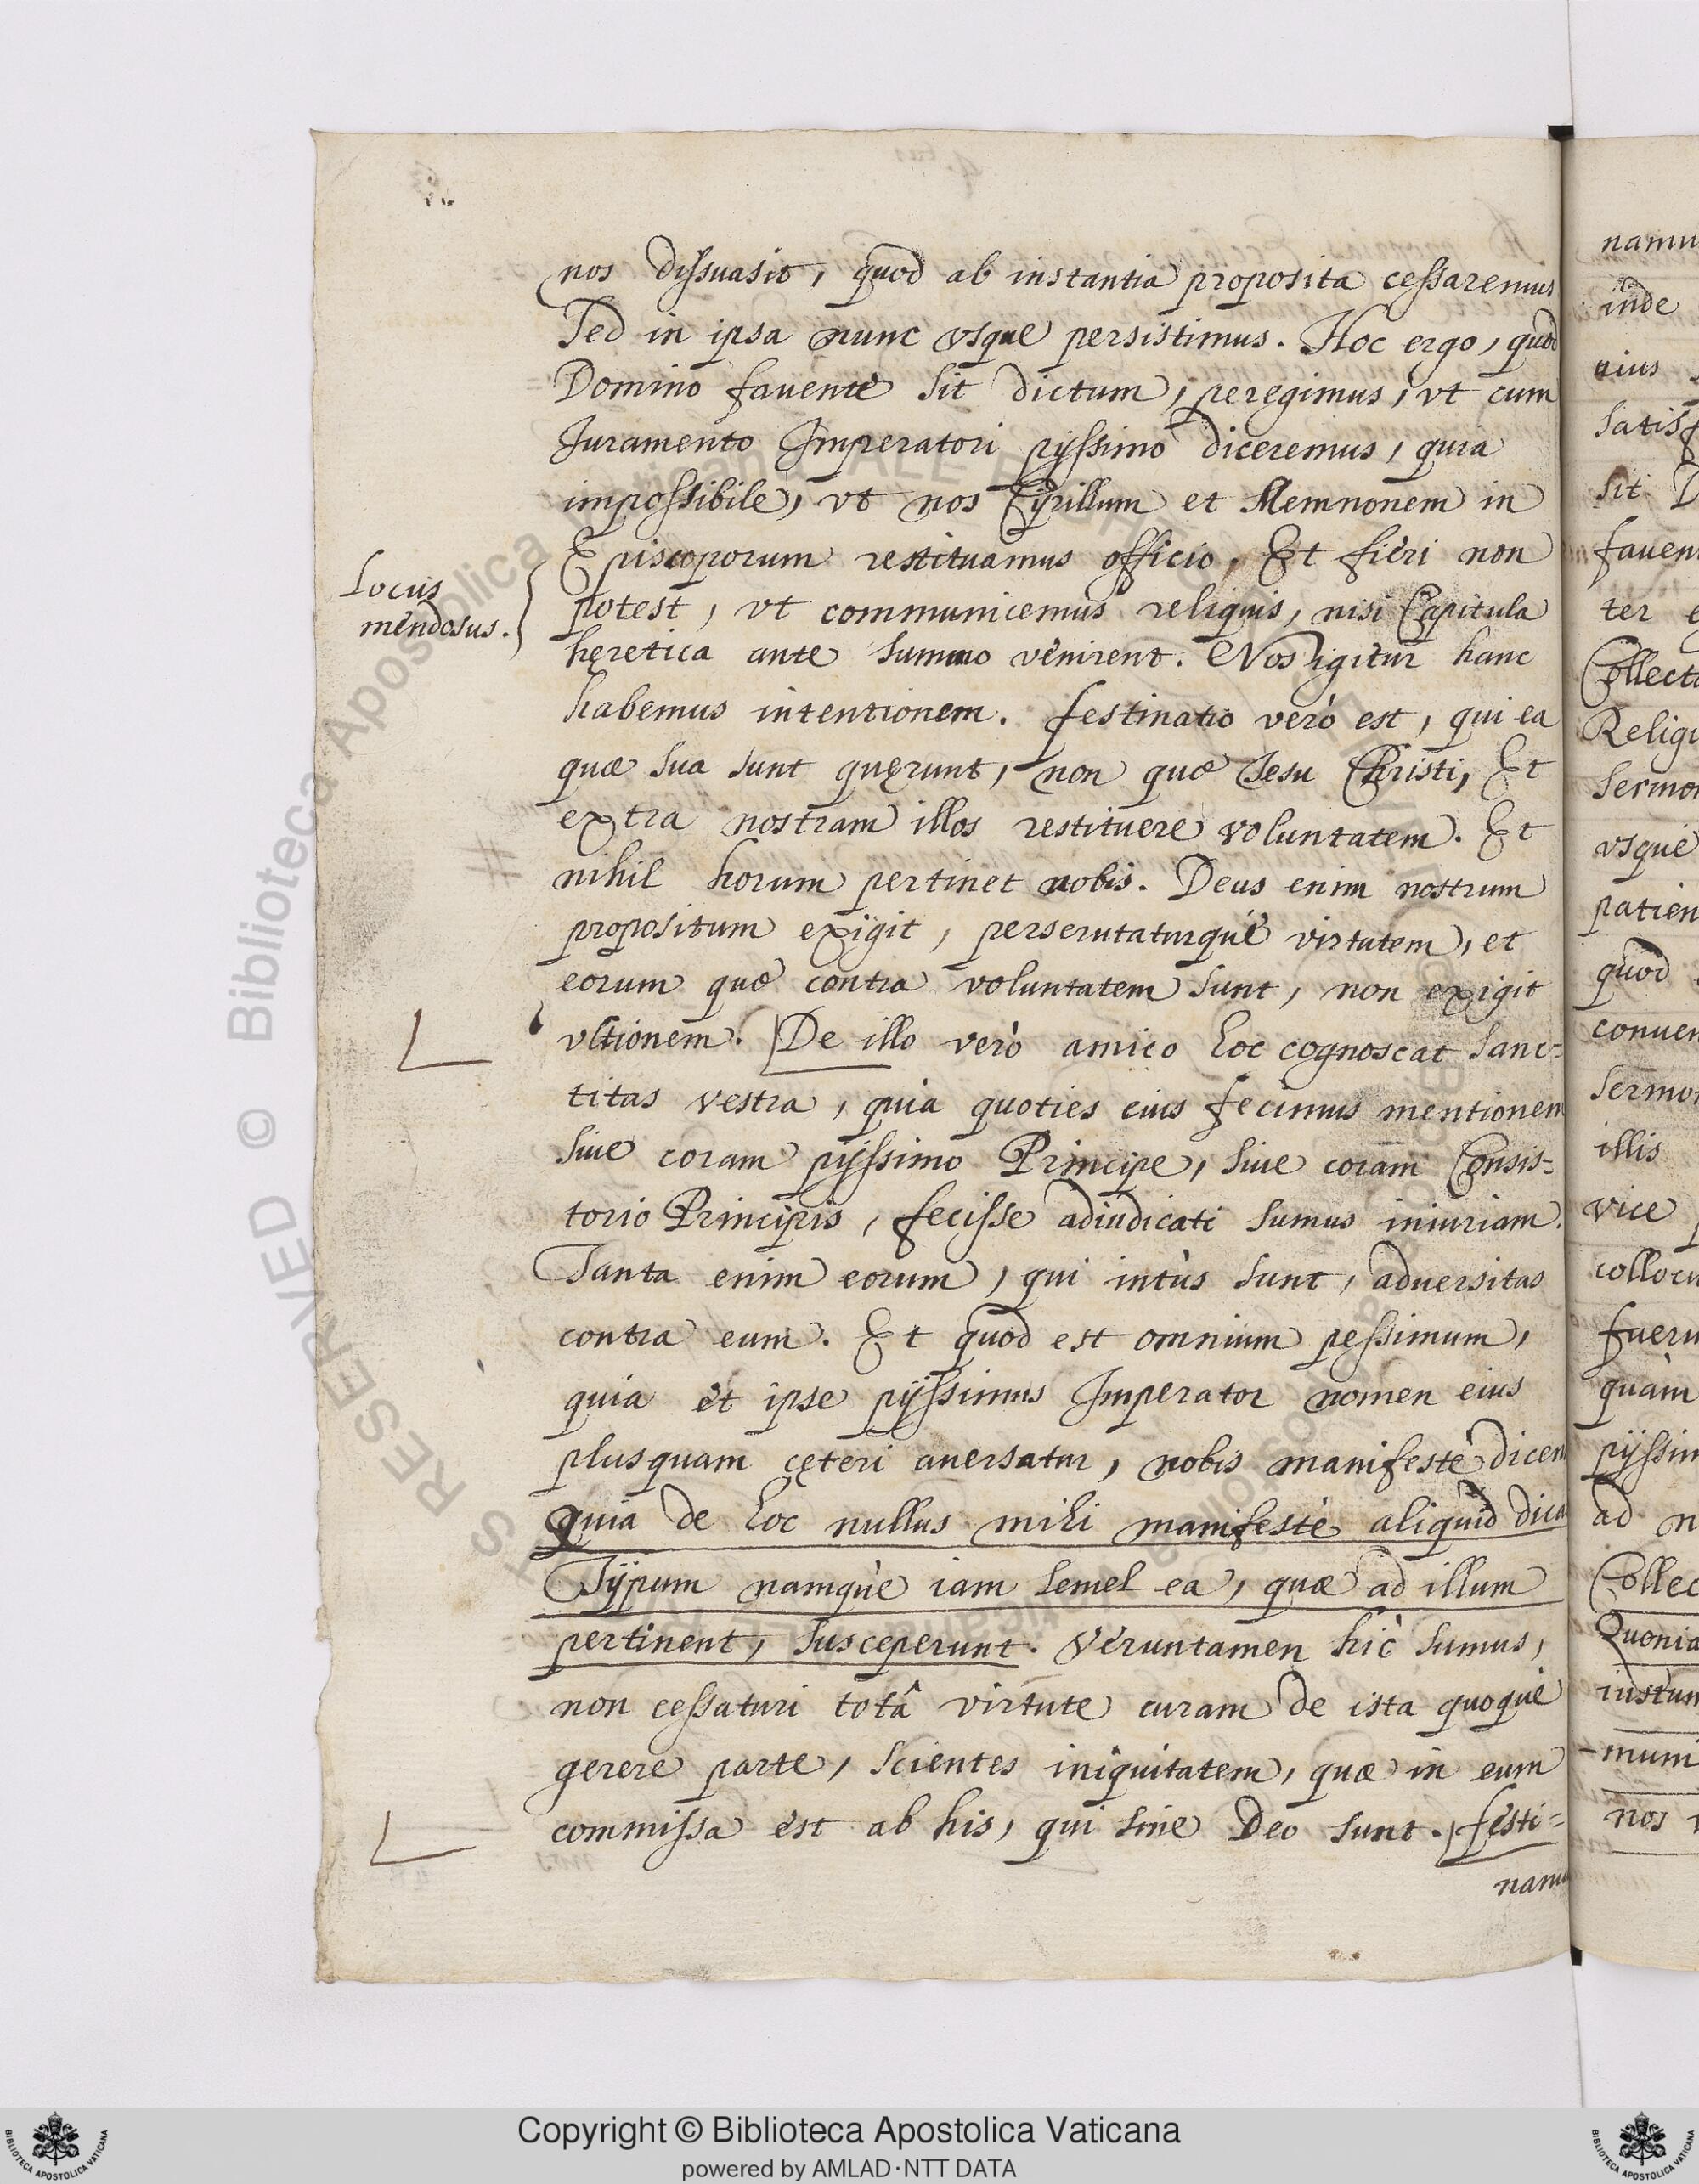 nos dissuasit, quod ab instantia proposita cessaremus
Sed in ipsa nunc vsque persistimus. Hoc ergo, quod
Domino fauente sit dictum, peregimus, vt cum
Juramento Imperatori pijssimo diceremus, quia
impossibile, vt nos Cÿrillum et Memnonem in
Episcoporum restituamus officio. Et fieri non
Locus
mendosus.
potest, vt communicemus reliquis, nisi Capitula
hęretica ante summo venirent. Nos igitur hanc
habemus intentionem. festinatio verò est, qui ea
quæ sua sunt quęrunt, non quæ Jesu Christi, Et
extra nostram illos restituere voluntatem. Et
nihil horum pertinet nobis. Deus enim nostrum
propositum exigit, perserutaturque virtutem, et
eorum quæ contra voluntatem sunt, non exigit
vltionem. De illo verò amico hoc cognoscat sanc=
titas vestra, quia quoties eius fecimus mentionem
siue coram pijssimo Principe, siue coram Consis=
torio Principis, fecisse adiudicati sumus iniuriam.
Tanta enim eorum, qui intùs sunt, aduersitas
contra eum. Et quod est omnium pessimum,
quia et ipse pijssimus Imperator nomen eius
plusquam cęteri auersatur, nobis manifestè dicen
quia de hoc nullus mihi manifestè aliquid dica
Tÿpum namque iam semel ea, quæ ad illum
pertinent, susceperunt. Veruntamen hìc sumus,
non cessaturi totâ virtute curam de ista quoque
gerere parte, scientes iniquitatem, quæ in eum
commissa est ab his, qui sine Deo sunt. festi=
namu
namu
inde
uius
satisf
sit D
fauen
ter e
Collecta
Religi
sermon
vsque
patien
quod
conuen
sermon
illis
vice p
collocu
fueru
quàm
pijssim
ad n
Collec
Quonia
iustum
muni
nos
© Biblioteca Apostolica Vaticana
Copyright © Biblioteca Apostolica Vaticana
powered by AMLAD·NTT DATA
BIBLIOTECA APOSTOLICA VATICANA
BIBLIOTECA APOSTOLICA VATICANA